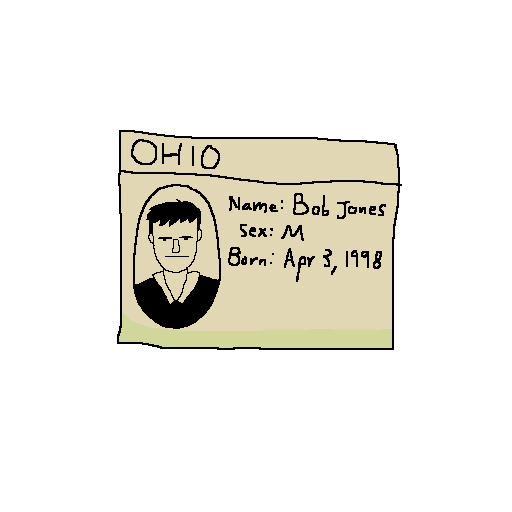 OHIO
Name: Bob Jones
Sex: M
Born: Apr 3, 1998